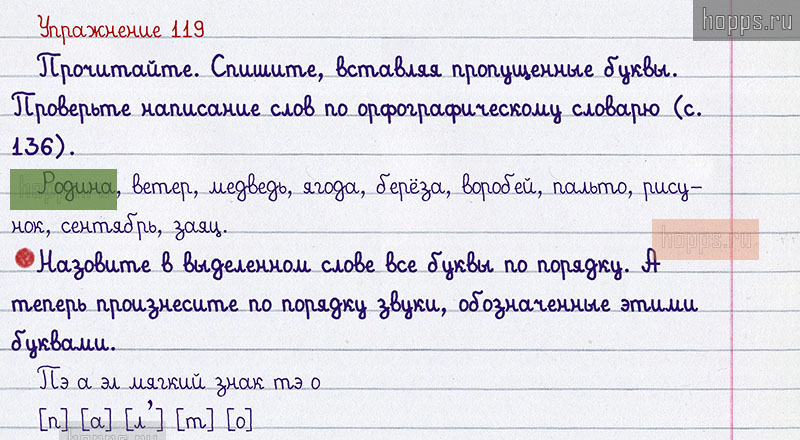 hopps.ru
Упражнение 119
Прочитайте. Спишите, вставляя пропущенные буквы.
Проверьте написание слов по орфографическому словарю (с.
136).
Родина, ветер, медведь, ягода, берёза, воробей, пальто, рису-
нок, сентябрь, заяц.
hopps.ru
Назовите в выделенном слове все буквы по порядку. А
теперь произнесите по порядку звуки, обозначенные этими
буквами.
Пэ а эл мягкий знак тэ о
[п] [а] [л’] [т] [о]
hopps.ru